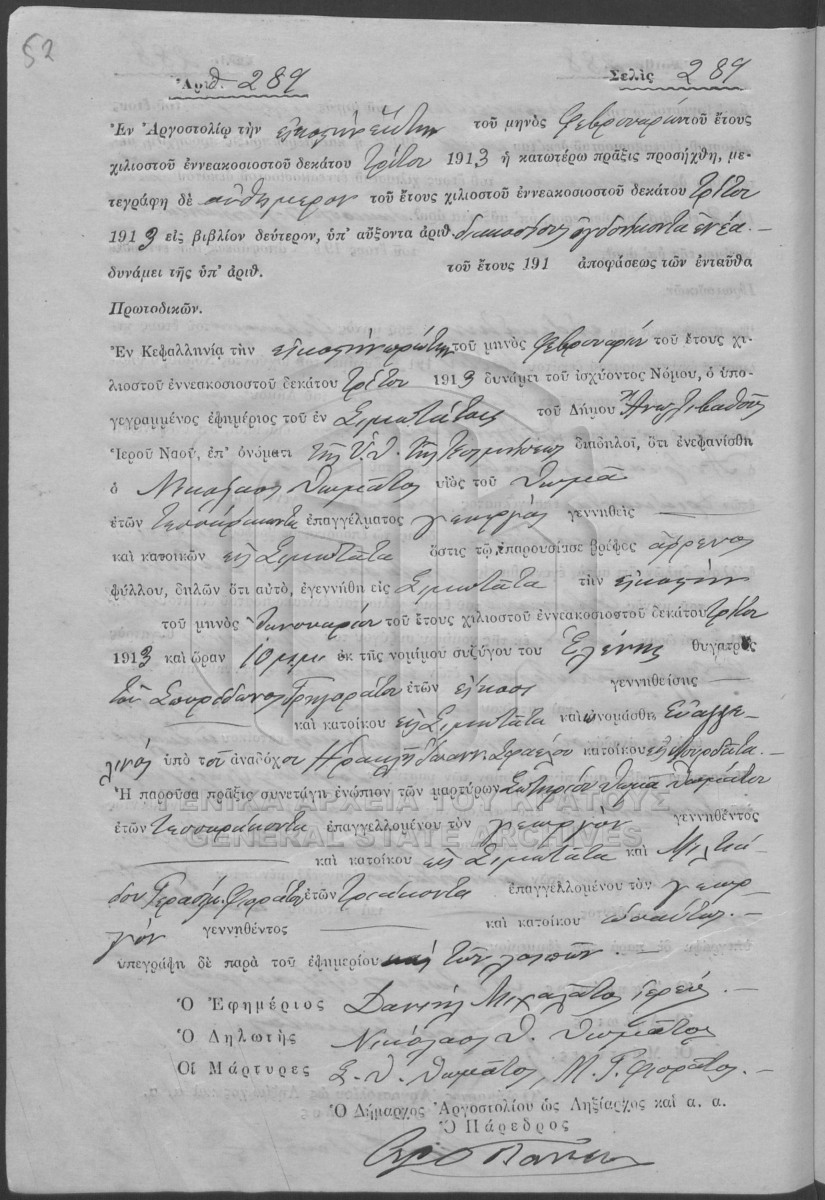 52
Ἀριθ. 289 Σελὶς 289
Ἐν Ἀργοστολίῳ τὴν εἰκοστὴν ἕκτην τοῦ μηνὸς Φεβρουαρίου τοῦ ἔτους
χιλιοστοῦ ἐννεακοσιοστοῦ δεκάτου τρίτου 1913 ἡ κατωτέρω πρᾶξις προσήχθη, με-
τεγράφη δὲ αὐθημερὸν τοῦ ἔτους χιλιοστοῦ ἐννεακοσιοστοῦ δεκάτου τρίτου
1913 εἰς βιβλίον δεύτερον, ὑπ' αὔξοντα ἀριθ. διακοσιοστὸν ὀγδοηκοντα ἐννέα.—
δυνάμει τῆς ὑπ' ἀριθ. τοῦ ἔτους 191 ἀποφάσεως τῶν ἐνταῦθα
Πρωτοδικῶν.
Ἐν Κεφαλληνίᾳ τὴν εἰκοστὴν πρώτην τοῦ μηνὸς Φεβρουαρίου τοῦ ἔτους χι-
λιοστοῦ ἐννεακοσιοστοῦ δεκάτου τρίτου 1913 δυνάμει τοῦ ἰσχύοντος Νόμου, ὁ ὑπο-
γεγραμμένος ἐφημέριος τοῦ ἐν Σιμωτάτοις τοῦ Δήμου
Ἱεροῦ Ναοῦ, ἐπ' ὀνόματι τῆς Ὑ. Θ. τῆς διαδηλοῖ, ὅτι ἐνεφανίσθη
ὁ Νικόλαος Θωμᾶτος υἱὸς τοῦ Θωμᾶ
ἐτῶν τεσσαράκοντα ἐπαγγέλματος γεωργὸς γεννηθεὶς —
καὶ κατοικῶν εἰς Σιμωτάτα ὅστις τῷ ἐπαρουσίασε βρέφος ἄρρενος
φύλλου, δηλῶν ὅτι αὐτὸ, ἐγεννήθη εἰς Σιμωτάτα τὴν εἰκοστὴν
τοῦ μηνὸς Ἰανουαρίου τοῦ ἔτους χιλιοστοῦ ἐννεακοσιοστοῦ δεκάτου τρίτου
1913 καὶ ὥραν 10 μ.μ. ἐκ τῆς νομίμου συζύγου του Ἑλένης θυγατρὸς
τοῦ Σπυρίδωνος Γρηγοράτου ἐτῶν εἴκοσι γεννηθείσης —
— καὶ κατοίκου εἰς Σιμωτάτα καὶ ὠνομάσθη Εὐαγγε-
λινὸς ὑπὸ τοῦ ἀναδόχου Ἡρακλῆ Ἰωάνν. κατοίκου εἰς .—
Ἡ παροῦσα πρᾶξις συνετάγη ἐνώπιον τῶν μαρτύρων Σωτηρίου Θωμᾶ Θωμάτου
ἐτῶν τεσσαράκοντα ἐπαγγελλομένου τὸν γεωργὸν γεννηθέντος
— καὶ κατοίκου εἰς Σιμωτάτα καὶ Μιλτιά-
δου Γερασίμ. Φιοράτου ἐτῶν τριάκοντα ἐπαγγελλομένου τὸν γεωρ-
γὸν γεννηθέντος — καὶ κατοίκου ὡσαύτως.—
ὑπεγράφη δὲ παρὰ τοῦ ἐφημερίου καὶ τῶν λοιπῶν.—
Ὁ Ἐφημέριος Δανιὴλ Μιχαλᾶτος ἱερεύς.—
Ὁ Δηλωτὴς Νικόλαος Θ. Θωμᾶτος
Οἱ Μάρτυρες Σ. Θ. Θωμᾶτος, Μ. Γ. Φιορᾶτος.—
Ὁ Δήμαρχος Ἀργοστολίου ὡς Ληξίαρχος καὶ α. α.
Ὁ Πάρεδρος
ΓΕΝΙΚΑ ΑΡΧΕΙΑ ΤΟΥ ΚΡΑΤΟΥΣ
GENERAL STATE ARCHIVES